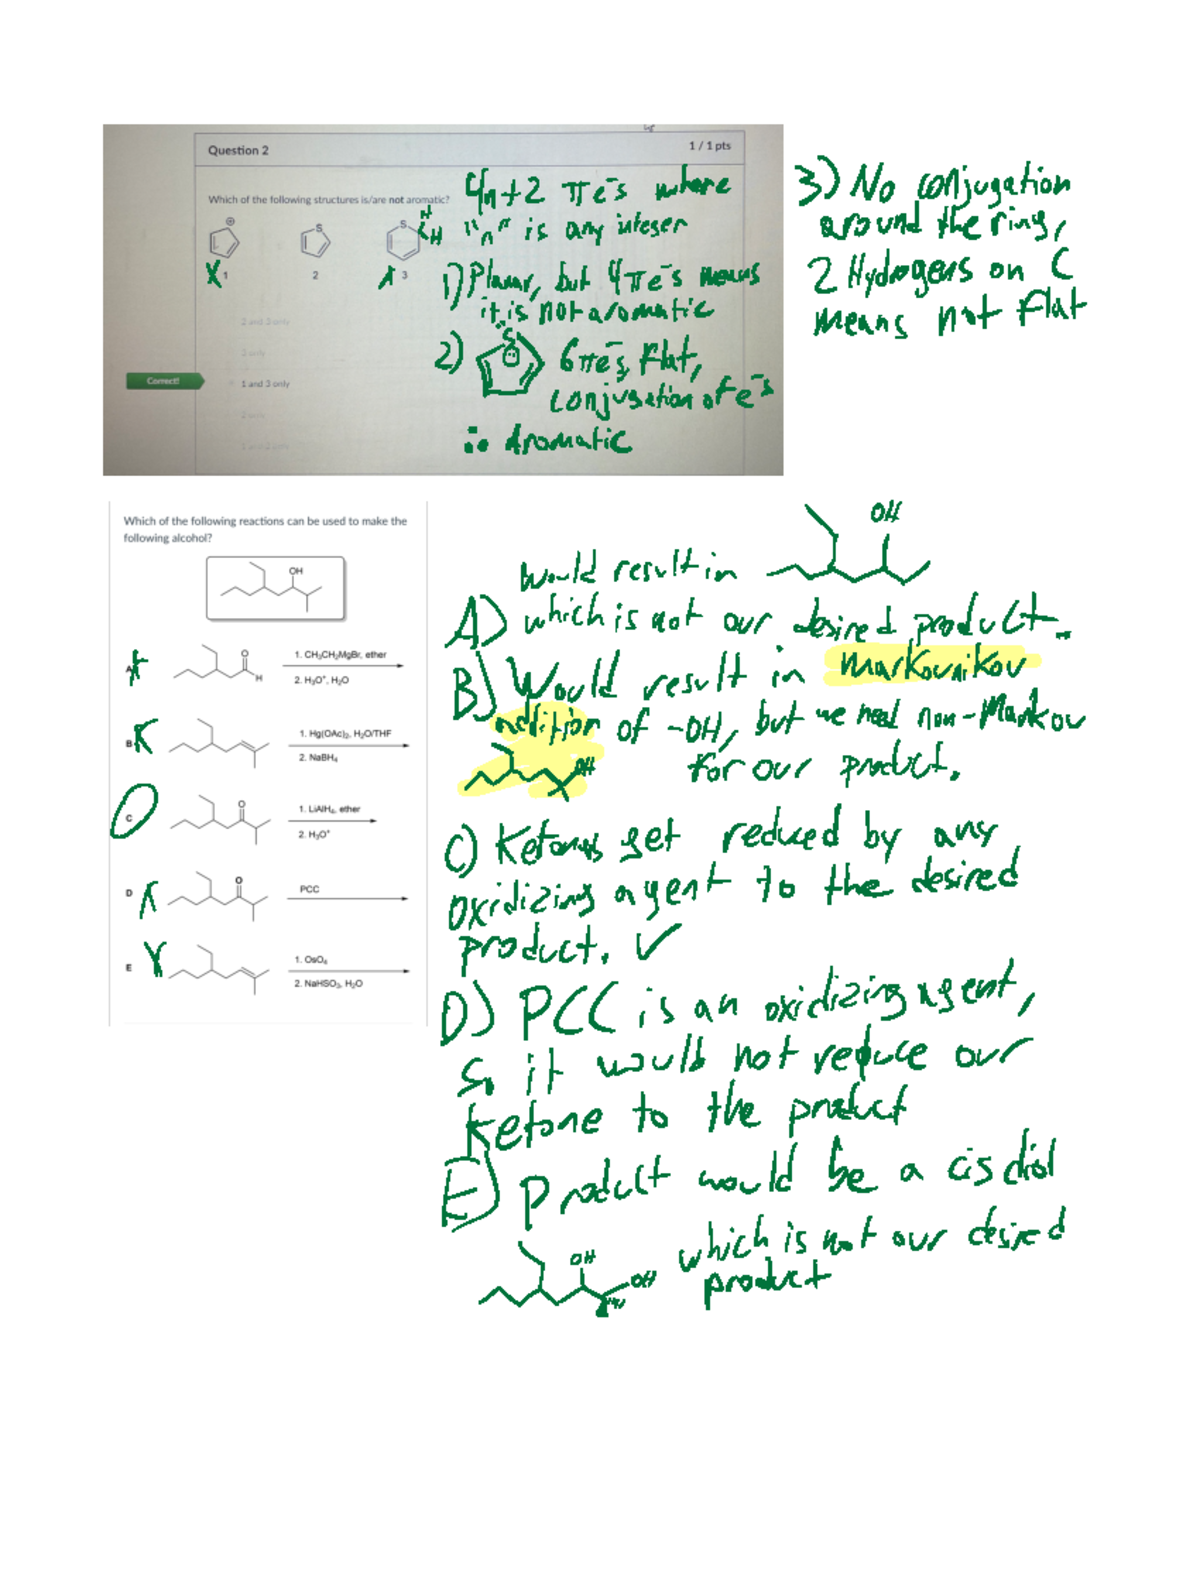 Question 2
1 / 1 pts
Which of the following structures is/are not aromatic?
4n+2 πe⁻s where
"n" is any integer
⊕
S
S
H
C H
X 1
2
X 3
1) Planar, but 4πe⁻s means
it is not aromatic
2 and 3 only
3 only
2) S 6πe⁻s, flat,
conjugation of e⁻s
∴ Aromatic
Correct!
1 and 3 only
2 only
3) No conjugation
around the ring,
2 Hydrogens on C
means not flat
Which of the following reactions can be used to make the
following alcohol?
OH
A
O
H
1. CH₃CH₂MgBr, ether
2. H₃O⁺, H₂O
B
1. Hg(OAc)₂, H₂O/THF
2. NaBH₄
C
O
1. LiAlH₄, ether
2. H₃O⁺
D
O
PCC
E
1. OsO₄
2. NaHSO₃, H₂O
OH
would result in
A) which is not our desired product.
B) Would result in Markovnikov
addition of -OH, but we need non-Markov
OH for our product.
C) Ketones get reduced by any
oxidizing agent to the desired
product. ✓
D) PCC is an oxidizing agent,
so it would not reduce our
ketone to the product
E) Product would be a cis diol
OH
OH
which is not our desired
product